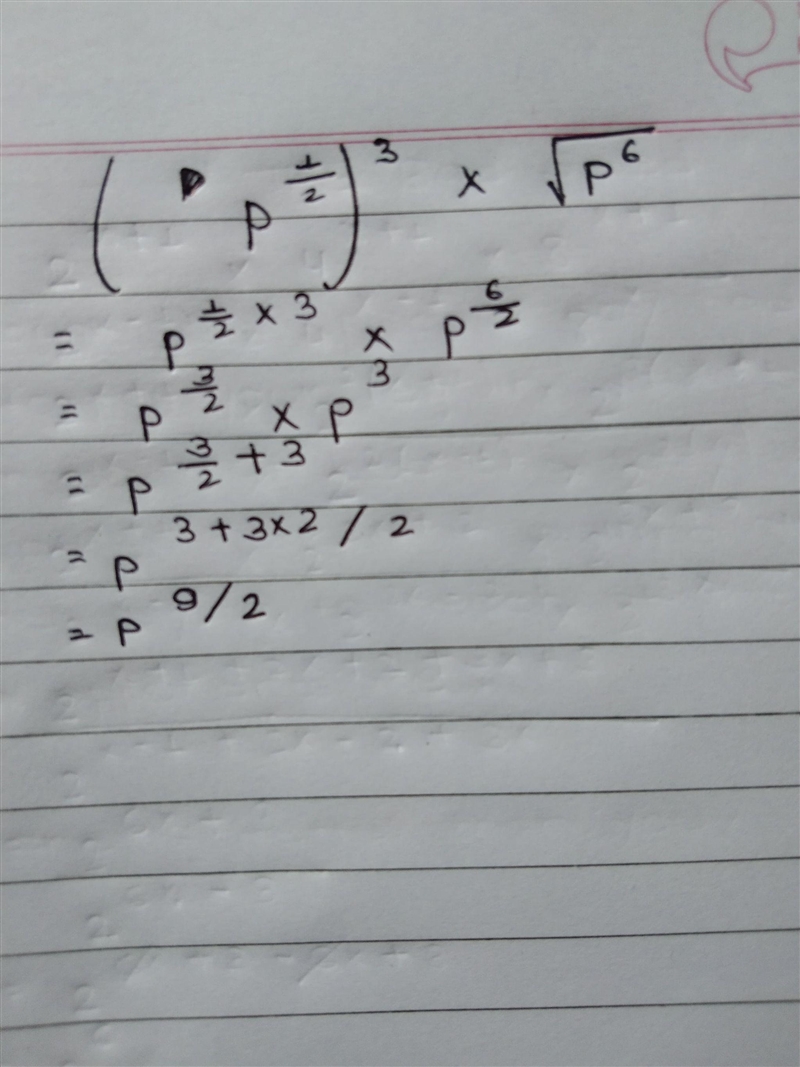 (p^{1/2})^3 × √(p^6)
= p^{1/2 × 3} × p^{6/2}
= p^{3/2} × p^3
= p^{3/2 + 3}
= p^{3 + 3×2 / 2}
= p^{9/2}